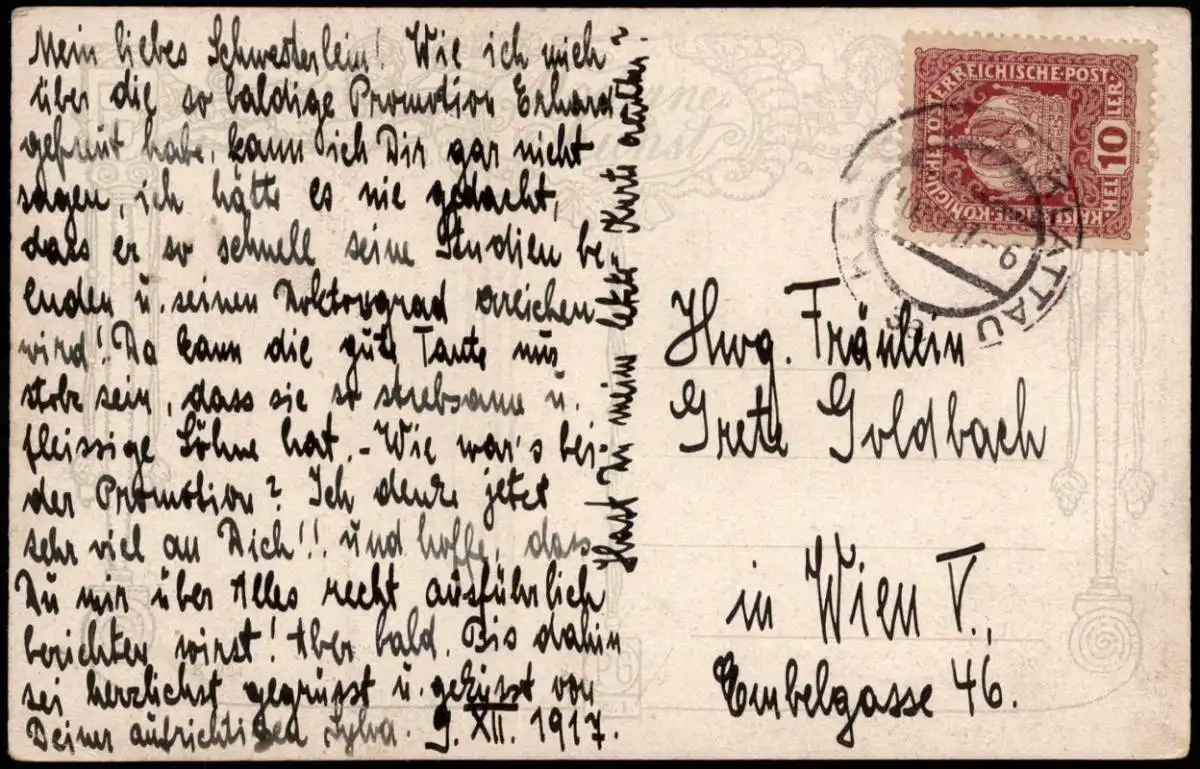 Mein liebes Schwesterlein! Wie ich mich
über die so baldige Promotion Erhard
gefreut habe, kann ich Dir gar nicht
sagen, ich hätte es nie gedacht,
dass er so schnell seine Studien be-
enden u. seinen Doktorgrad erreichen
wird! Da kann die gute Tante nur
stolz sein, dass sie so strebsame u.
fleissige Söhne hat. - Wie war's bei
der Promotion? Ich denke jetzt
sehr viel an Dich!! und hoffe, dass
Du mir über Alles recht ausführlich
berichten wirst! Aber bald. Bis dahin
sei herzlichst gegrüsst u. geküsst von
Deiner aufrichtigen Sylva. 9. XII. 1917.
Hast Du meine letzte Karte erhalten?
KAISERLICHE KÖNIGLICHE ÖSTERREICHISCHE POST
10 HELLER
KLATTAU
Hwg. Fräulein
Grete Goldbach
in Wien V.,
Embelgasse 46.